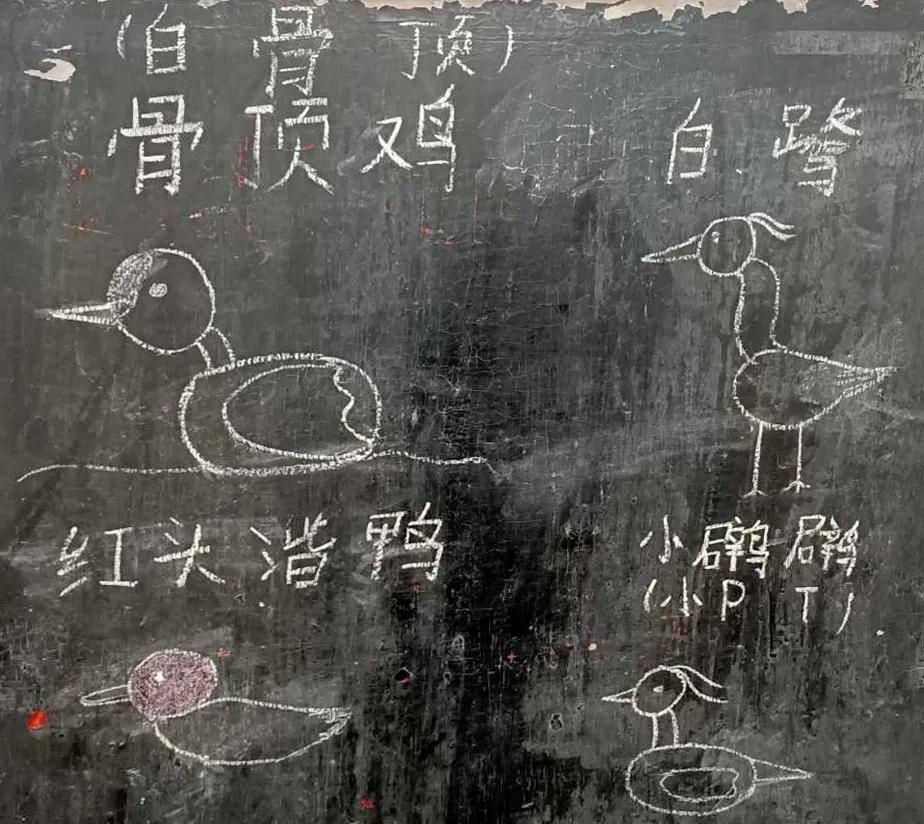 (白骨顶)
骨顶鸡
白鹭
红头潜鸭
小䴙䴘
(小PT)